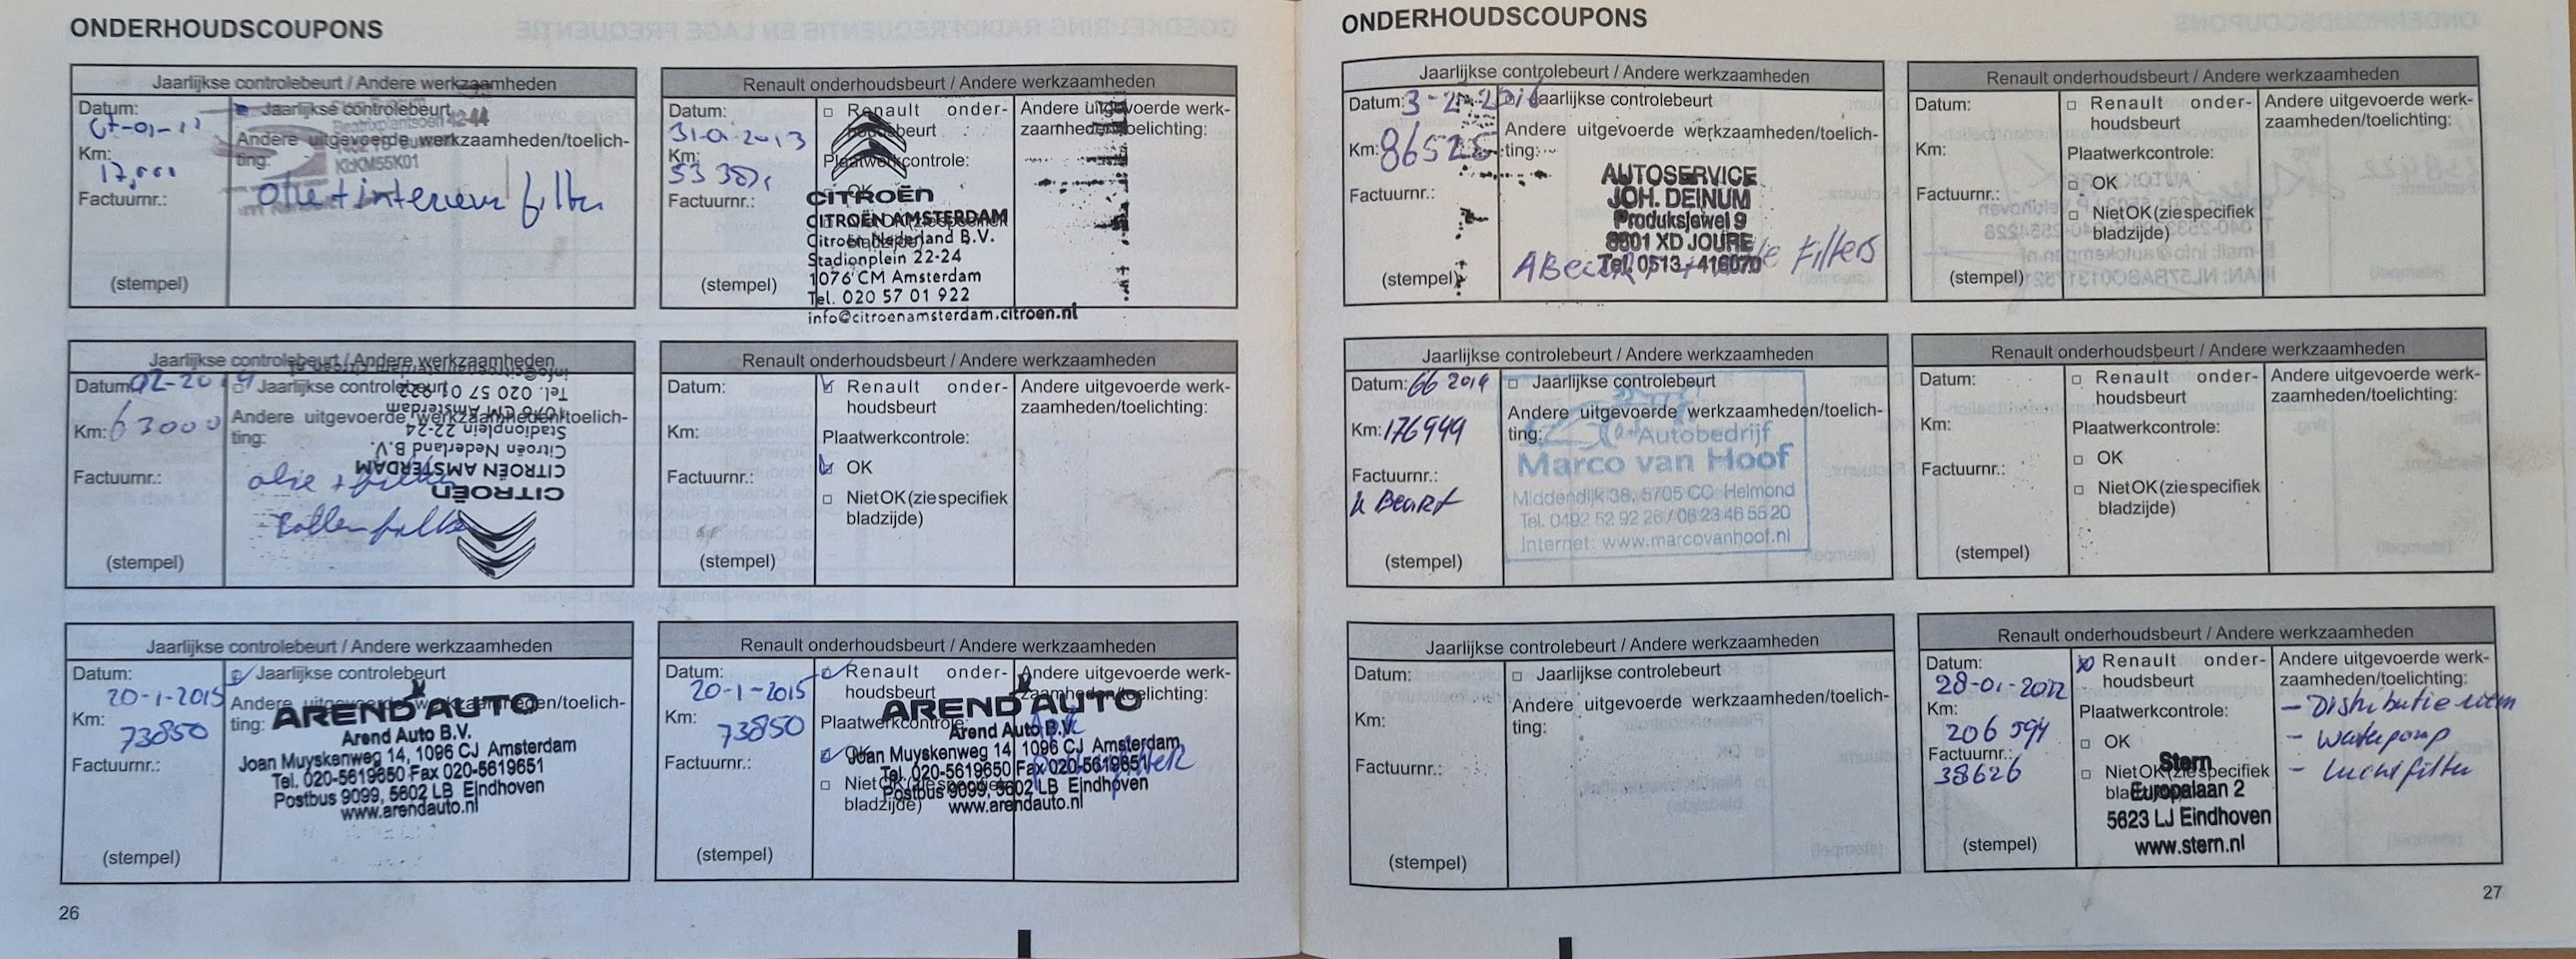 ONDERHOUDSCOUPONS
Jaarlijkse controlebeurt / Andere werkzaamheden
Datum:
07-01-
Jaarlijkse controlebeurt
Andere uitgevoerde werkzaamheden/toelich-
ting:
KHKM55K01
Km:
17.000
Factuurnr.:
olie + interieur filter
(stempel)
Renault onderhoudsbeurt / Andere werkzaamheden
Datum:
31-01-2013
Km:
Factuurnr.:
(stempel)
□ Renault onder-
houdsbeurt
Plaatwerkcontrole:
OK
bladzijde)
Andere uitgevoerde werk-
zaamheden/toelichting:
CITROËN
CITROËN AMSTERDAM
Citroën Nederland B.V.
Stadionplein 22-24
1076 CM Amsterdam
Tel. 020 57 01 922
info@citroenamsterdam.citroen.nl
Jaarlijkse controlebeurt / Andere werkzaamheden
Datum:
02-2014
□ Jaarlijkse controlebeurt
Andere uitgevoerde werkzaamheden/toelich-
ting:
Km: 63000
Factuurnr.:
olie + filter
(stempel)
CITROËN
CITROËN AMSTERDAM
Citroën Nederland B.V.
Stadionplein 22-24
1076 CM Amsterdam
Tel. 020 57 01 922
info@citroenamsterdam.citroen.nl
Renault onderhoudsbeurt / Andere werkzaamheden
Datum:
Km:
Factuurnr.:
(stempel)
Renault onder-
houdsbeurt
Plaatwerkcontrole:
OK
□ Niet OK (zie specifiek
bladzijde)
Andere uitgevoerde werk-
zaamheden/toelichting:
Jaarlijkse controlebeurt / Andere werkzaamheden
Datum:
20-1-2015
Km:
73850
Factuurnr.:
(stempel)
Jaarlijkse controlebeurt
Andere uitgevoerde werkzaamheden/toelich-
ting:
AREND AUTO
Arend Auto B.V.
Joan Muyskenweg 14, 1096 CJ Amsterdam
Tel. 020-5619650 Fax 020-5619651
Postbus 9099, 5602 LB Eindhoven
www.arendauto.nl
Renault onderhoudsbeurt / Andere werkzaamheden
Datum:
20-1-2015
Km:
73850
Factuurnr.:
(stempel)
Renault onder-
houdsbeurt
Plaatwerkcontrole:
OK
□ Niet OK (zie specifiek
bladzijde)
Andere uitgevoerde werk-
zaamheden/toelichting:
AREND AUTO
Arend Auto B.V.
Joan Muyskenweg 14, 1096 CJ Amsterdam
Tel. 020-5619650 Fax 020-5619651
Postbus 9099, 5602 LB Eindhoven
www.arendauto.nl
26
ONDERHOUDSCOUPONS
Jaarlijkse controlebeurt / Andere werkzaamheden
Datum: 3-2-2016
Km: 86525
Factuurnr.:
(stempel)
Jaarlijkse controlebeurt
Andere uitgevoerde werkzaamheden/toelich-
ting:
AUTOSERVICE
JOH. DEINUM
Produksjewei 9
8501 XD JOURE
Tel. 0513-416070
Filters
Renault onderhoudsbeurt / Andere werkzaamheden
Datum:
Km:
Factuurnr.:
(stempel)
□ Renault onder-
houdsbeurt
Plaatwerkcontrole:
□ OK
□ Niet OK (zie specifiek
bladzijde)
Andere uitgevoerde werk-
zaamheden/toelichting:
Jaarlijkse controlebeurt / Andere werkzaamheden
Datum: 66 2019
Km: 176949
Factuurnr.:
Beurt
(stempel)
□ Jaarlijkse controlebeurt
Andere uitgevoerde werkzaamheden/toelich-
ting:
Autobedrijf
Marco van Hoof
Middendijk 38, 5705 CC Helmond
Tel. 0492 52 92 26 / 06 23 46 55 20
Internet: www.marcovanhoof.nl
Renault onderhoudsbeurt / Andere werkzaamheden
Datum:
Km:
Factuurnr.:
(stempel)
□ Renault onder-
houdsbeurt
Plaatwerkcontrole:
□ OK
□ Niet OK (zie specifiek
bladzijde)
Andere uitgevoerde werk-
zaamheden/toelichting:
Jaarlijkse controlebeurt / Andere werkzaamheden
Datum:
Km:
Factuurnr.:
(stempel)
□ Jaarlijkse controlebeurt
Andere uitgevoerde werkzaamheden/toelich-
ting:
Renault onderhoudsbeurt / Andere werkzaamheden
Datum:
28-01-2022
Km:
206 594
Factuurnr.:
38626
(stempel)
Renault onder-
houdsbeurt
Plaatwerkcontrole:
□ OK
□ Niet OK (zie specifiek
bladzijde)
Stern
Europalaan 2
5623 LJ Eindhoven
www.stern.nl
Andere uitgevoerde werk-
zaamheden/toelichting:
- Distributieriem
- Waterpomp
- Luchtfilter
27